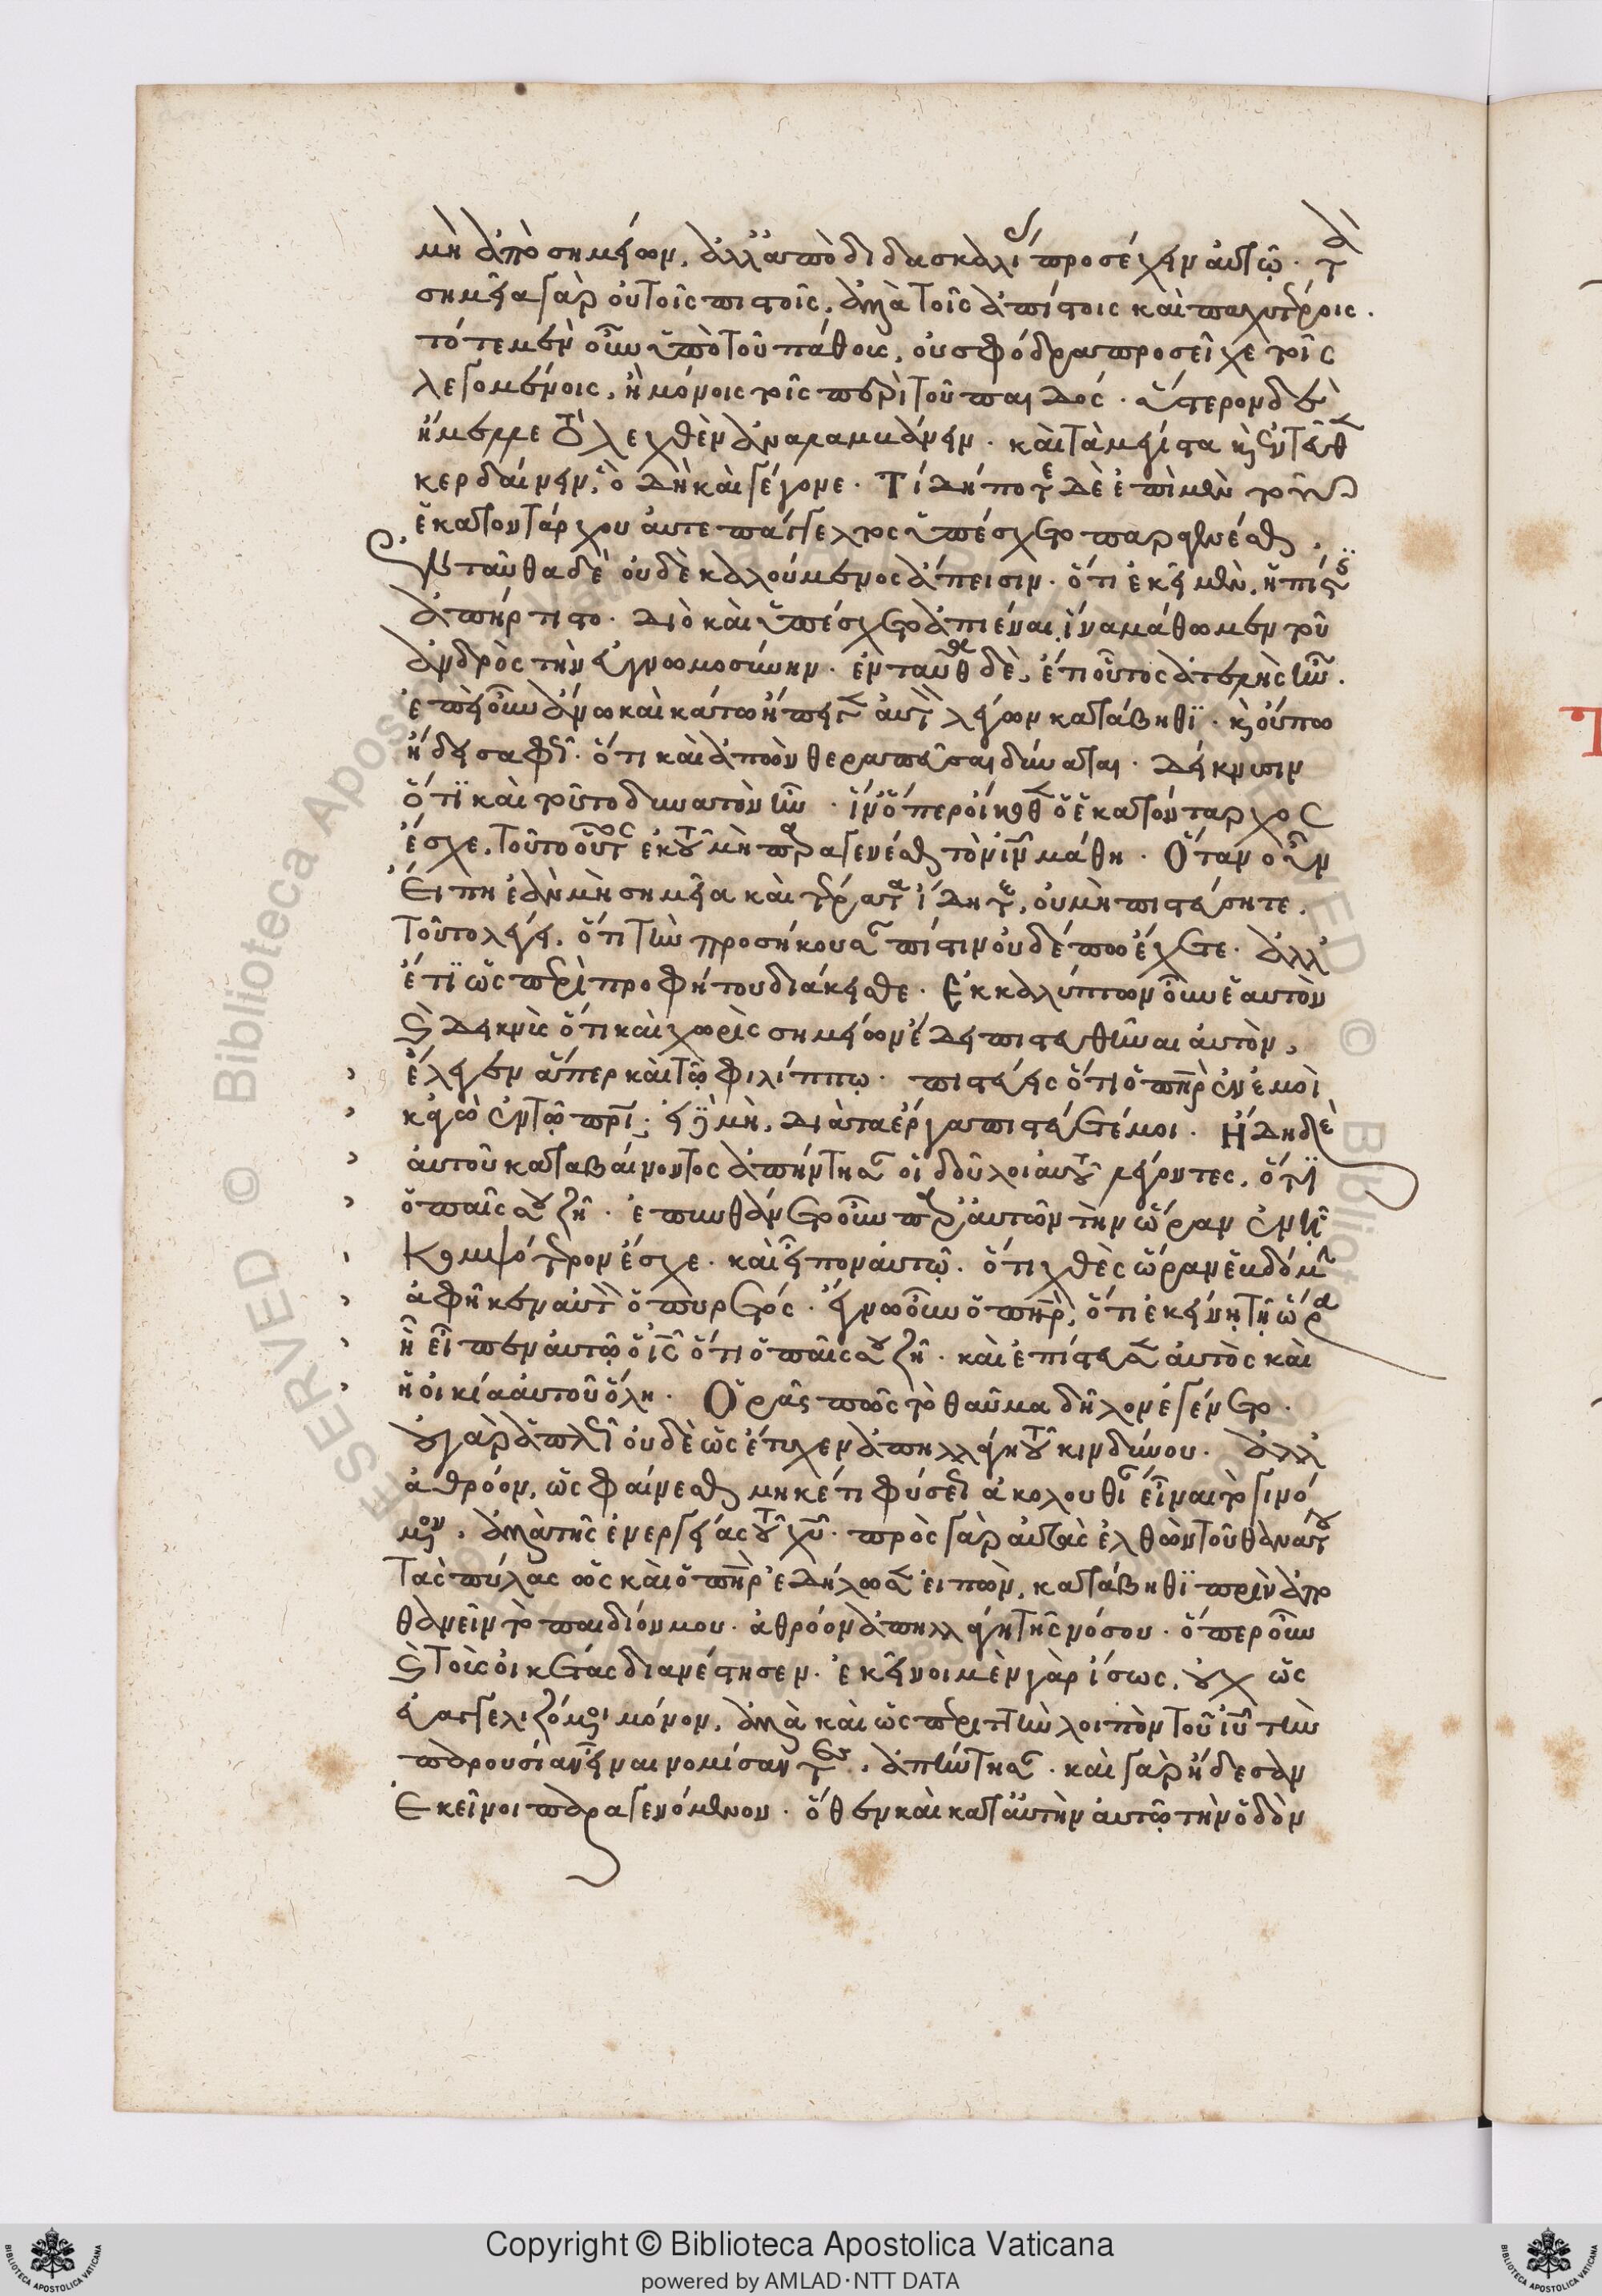 μὴ ἀπὸ σημείων, ἀλλ' ἀπὸ διδασκαλίας προσέχειν αὐτῷ. τὰ
σημεῖα γὰρ οὐ τοῖς πιστοῖς, ἀλλὰ τοῖς ἀπίστοις καὶ παχυτέροις.
τότε μὲν οὖν ὑπὸ τοῦ πάθους, οὐ σφόδρα προσεῖχε τοῖς
λεγομένοις, ἢ μόνοις τοῖς περὶ τοῦ παιδός. ὕστερον δὲ
ἤμελλε τὸ λεχθὲν ἀναλαμβάνειν. καὶ τὰ μέγιστα κἀντεῦθεν
κερδαίνειν, ὃ δὴ καὶ γέγονε. Τί δήποτε δὲ ἐπὶ μὲν τοῦ
ἑκατοντάρχου αὐτεπάγγελτος ὑπέσχετο παραγενέσθαι,
ἐνταῦθα δὲ οὐδὲ καλούμενος ἄπεισιν. ὅτι ἐκεῖ μὲν, ἡ πίστις
ἀπήρτιστο. διὸ καὶ ὑπέσχετο ἀπιέναι ἵνα μάθωμεν τοῦ
ἀνδρὸς τὴν εὐγνωμοσύνην. ἐνταῦθα δὲ, ἔτι οὗτος ἀτελὴς ἦν.
ἐπεὶ οὖν ἄνω καὶ κάτω ἤπειγεν αὐτὸν λέγων κατάβηθι. καὶ οὔπω
ᾔδει σαφῶς. ὅτι καὶ ἀπὼν θεραπεῦσαι δύναται. δείκνυσιν
ὅτι καὶ τοῦτο δυνατὸν ἦν. ἵν' ὅπερ οἴκοθεν ὁ ἑκατόνταρχος
ἔσχε, τοῦτο οὗτος ἐκ τοῦ μὴ παραγενέσθαι τὸν ἰησοῦν μάθη. Ὅταν οὖν
Εἴπη ἐὰν μὴ σημεῖα καὶ τέρατα ἴδητε, οὐ μὴ πιστεύσητε,
τοῦτο λέγει, ὅτι τὴν προσήκουσαν πίστιν οὐδέπω ἔχετε. ἀλλ'
ἔτι ὡς περὶ προφήτου διάκεισθε. Ἐκκαλύπτων οὖν ἑαυτὸν
καὶ δεικνὺς ὅτι καὶ χωρὶς σημείων ἔδει πιστευθῆναι αὐτὸν,
ἔλεγεν ἅπερ καὶ τῷ φιλίππῳ. πιστεύεις ὅτι ὁ πατὴρ ἐν ἐμοὶ
κἀγὼ ἐν τῷ πατρί; εἰ δὲ μὴ, διὰ τὰ ἔργα πιστεύετέ μοι. Ἤδη δὲ
αὐτοῦ καταβαίνοντος ἀπήντησαν οἱ δοῦλοι αὐτοῦ λέγοντες, ὅτι
ὁ παῖς σου ζῆ. ἐπυνθάνετο οὖν παρ' αὐτῶν τὴν ὥραν ἐν ᾗ
Κομψότερον ἔσχε. καὶ εἶπον αὐτῷ. ὅτι χθὲς ὥραν ἑβδόμην
ἀφῆκεν αὐτὸν ὁ πυρετός. ἔγνω οὖν ὁ πατὴρ, ὅτι ἐκείνῃ τῇ ὥρα
ᾗ εἶπεν αὐτῷ ὁ ἰησοῦς ὅτι ὁ παῖς σου ζῆ. καὶ ἐπίστευσεν αὐτὸς καὶ
ἡ οἰκία αὐτοῦ ὅλη. Ὁρᾷς πῶς τὸ θαῦμα δῆλον ἐγένετο.
οὐ γὰρ ἁπλῶς οὐδὲ ὡς ἔτυχεν ἀπηλλάγη τοῦ κινδύνου. ἀλλ'
ἀθρόον, ὡς φαίνεσθαι μηκέτι φύσεως ἀκολουθίαν εἶναι τὸ γινό
μενον, ἀλλὰ τῆς ἐνεργείας τοῦ χριστοῦ. πρὸς γὰρ αὐτὰς ἐλθὼν τοῦ θανάτου
τὰς πύλας ὡς καὶ ὁ πατὴρ ἐδήλωσεν εἰπὼν, κατάβηθι πρὶν ἀπο
θανεῖν τὸ παιδίον μου. ἀθρόον ἀπηλλάγη τῆς νόσου. ὅπερ οὖν
καὶ τοὺς οἰκέτας διανέστησεν. ἐκεῖνοι μὲν γὰρ ἴσως, οὐχ ὡς
εὐαγγελιζόμενοι μόνον, ἀλλὰ καὶ ὡς περιττὴν λοιπὸν τοῦ ἰησοῦ τὴν
παρουσίαν εἶναι νομίσαντες, ἀπήντησαν. καὶ γὰρ ᾔδεσαν
Ἐκεῖνοι παραγενόμενον. ὅθεν καὶ κατ' αὐτὴν αὐτῷ τὴν ὁδὸν
Copyright © Biblioteca Apostolica Vaticana
powered by AMLAD·NTT DATA